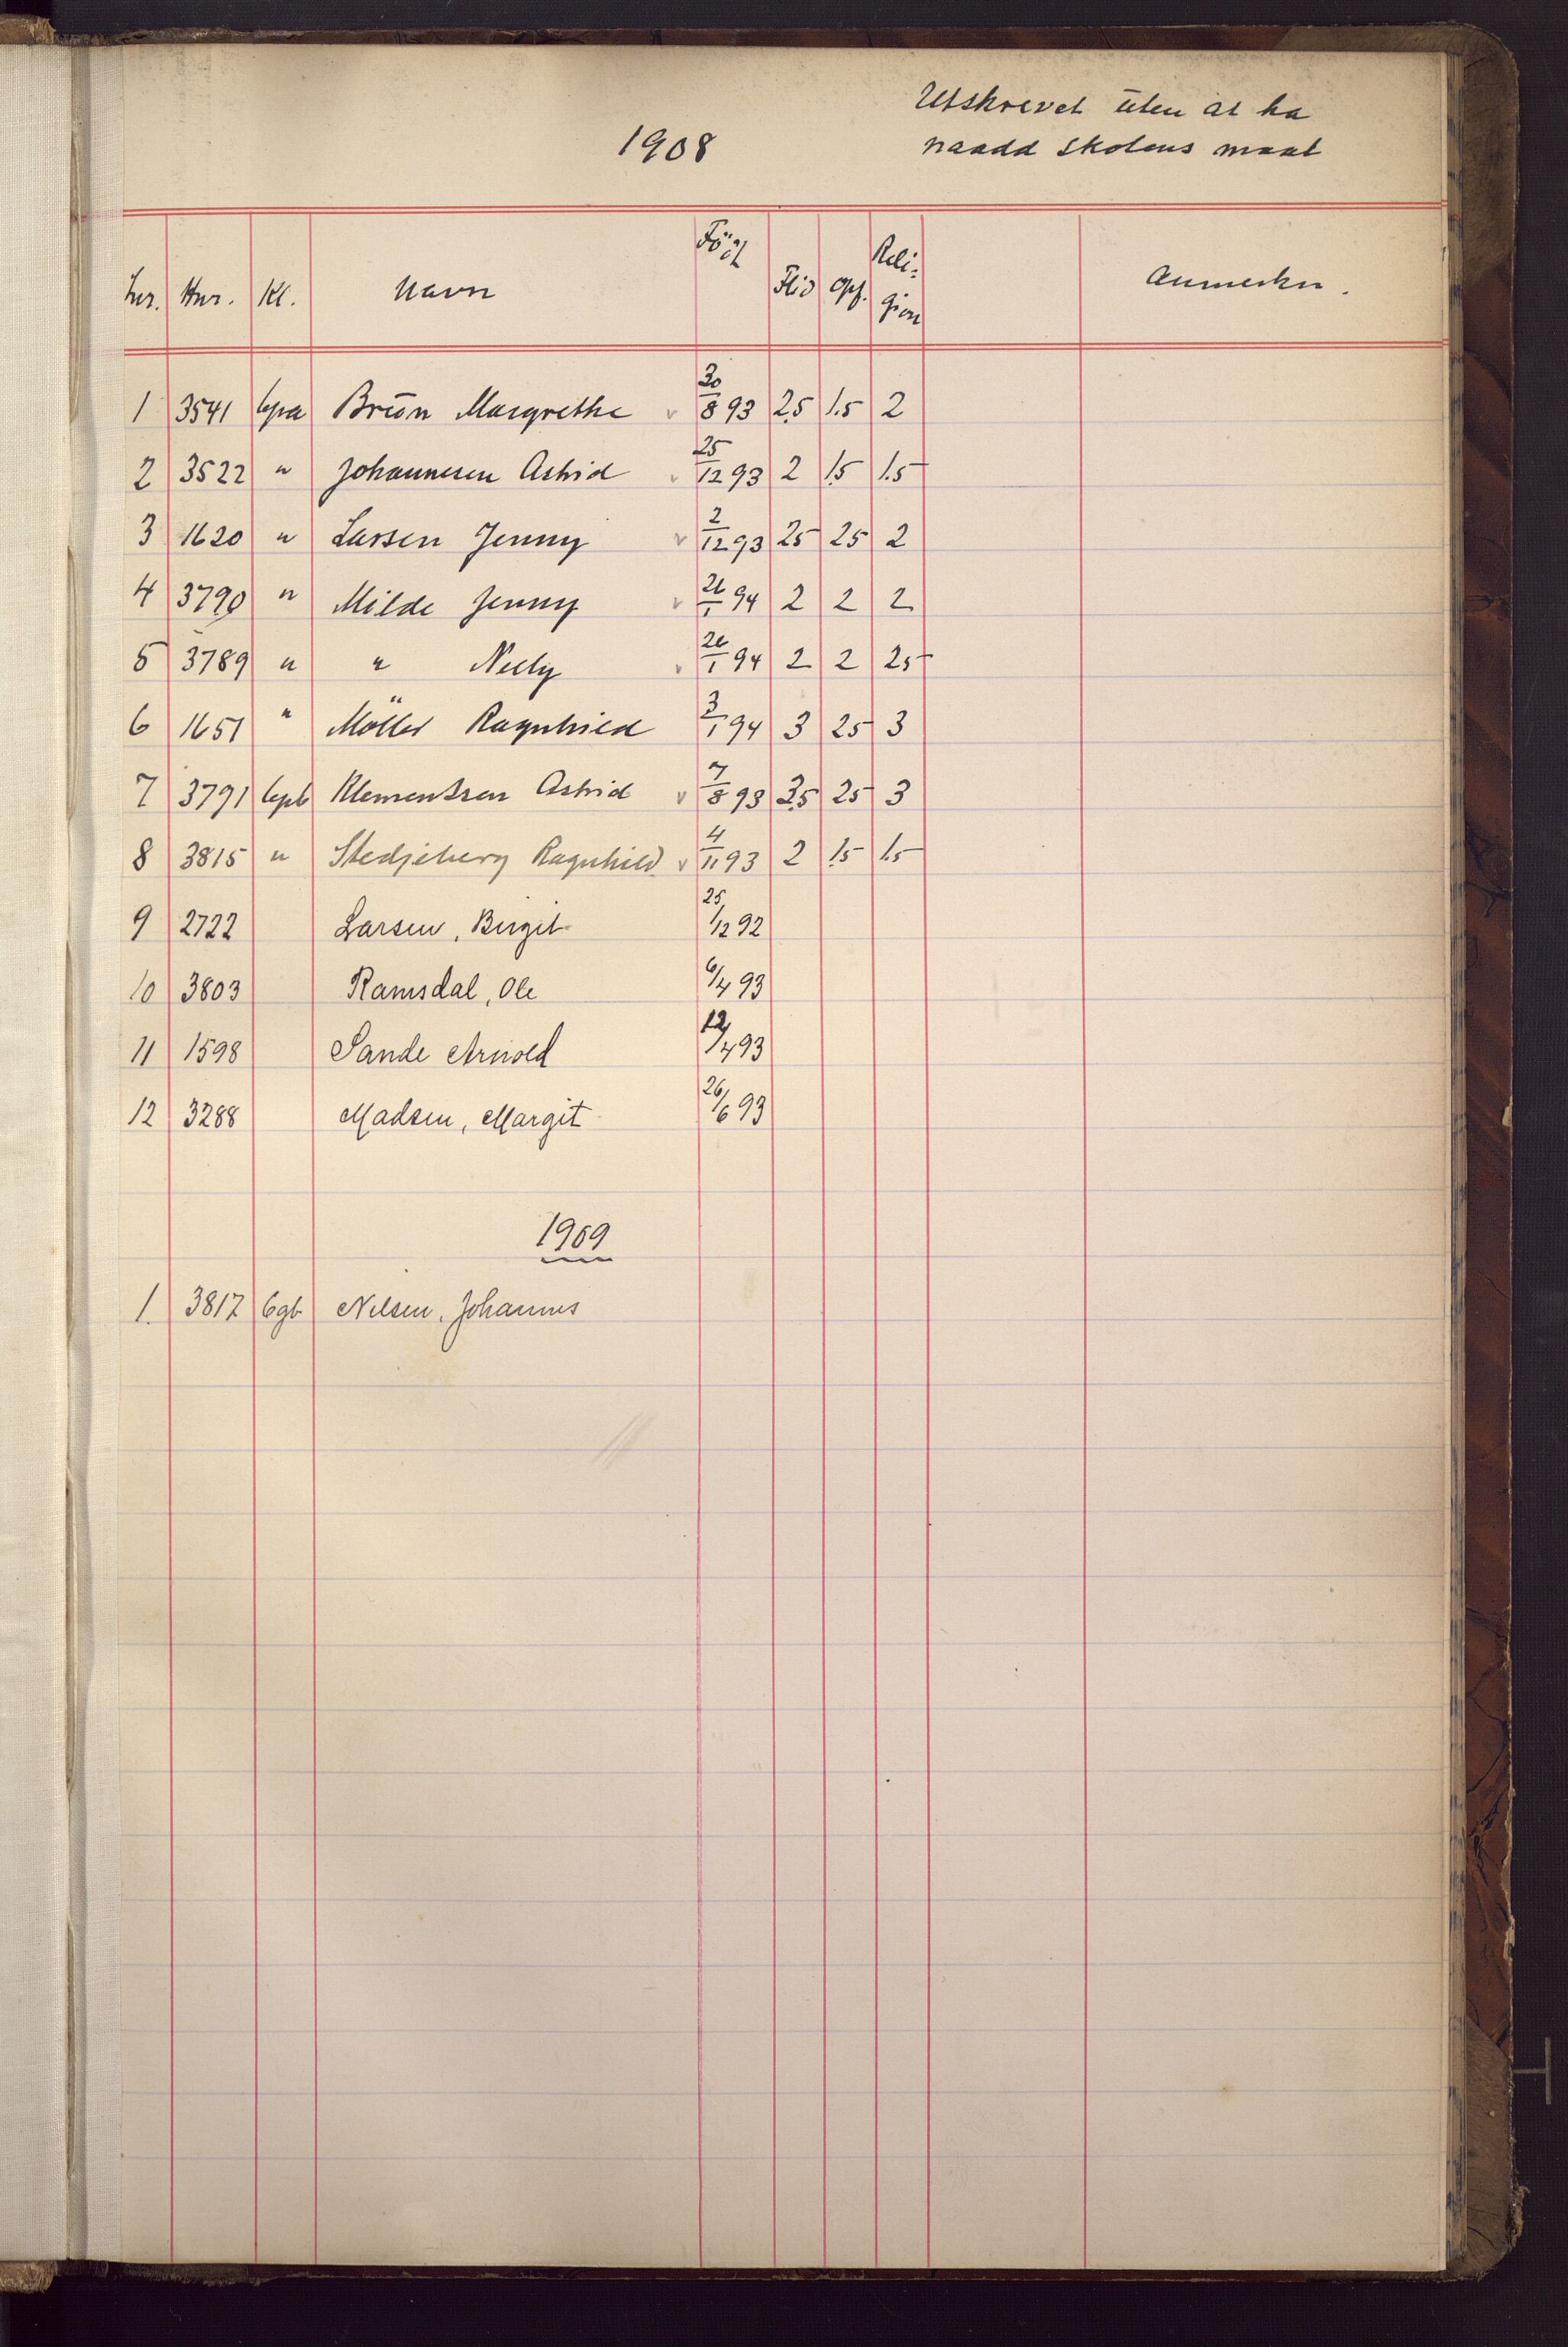 1908
Utskrevet uten at ha
naadd skolens maal
Lnr. Hnr. Kl. Navn Föd Flid Opf. Reli-gion Anmerkn.
1 3541 6pa Brŭn Margrethe v 30/8 93 2.5 1.5 2
2 3522 " Johannesen Astrid v 25/12 93 2 1.5 1.5
3 1620 " Larsen Jenny v 2/12 93 25 25 2
4 3790 " Milde Jenny v 26/1 94 2 2 2
5 3789 " " Nelly v 26/1 94 2 2 25
6 1651 " Möller Ragnhild 3/1 94 3 25 3
7 3791 6pb Klementsen Astrid v 7/8 93 3.5 25 3
8 3815 " Stedjeberg Ragnhild v 4/11 93 2 1.5 1.5
9 2722 Larsen, Birgit 25/12 92
10 3803 Ramsdal, Ole 6/4 93
11 1598 Sande Arnold 12/4 93
12 3288 Madsen, Margit 26/6 93
1909
1. 3817 6gb Nilsen, Johannes